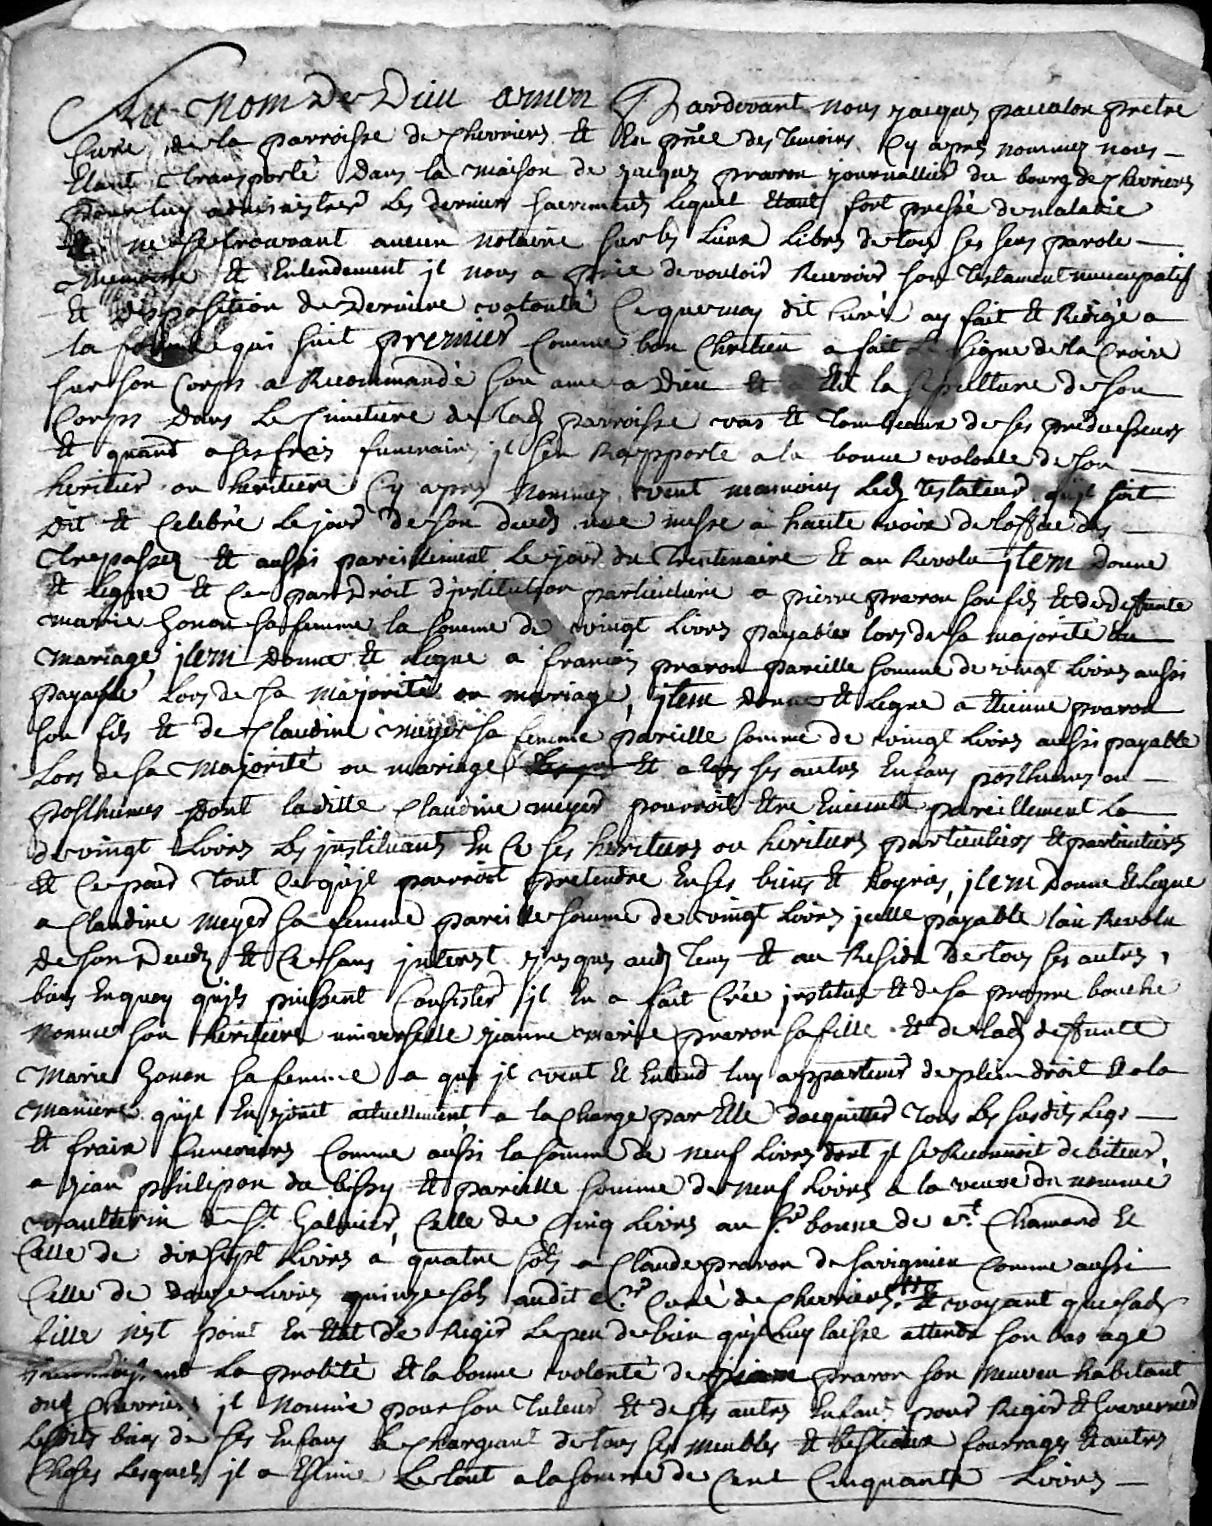 Au Nom De Dieu amen Pardevant nous jacques paccalon pretre
Curé de la parroisse de Chevrieres Et En pñce des temoins Cy apres nommez nous
Etant transporté Dans la maison de jacques pravon journallier du bourg de Chevrieres
pour luy administrer Les derniers sacrements Lequel Etant fort pressé de maladie
Et ne se trouvant aucun notaire sur les Lieux Libre de tous ses sens parole
memoire Et Entendement jl nous a prié de vouloir Recevoir son testament nuncupatif
Et disposition de Derniere volonté Ce que moy dit Curé ay fait Et Redigé a
la forme qui suit premier Comme bon Chretien a fait Le signe de la Croix
sur son Corps a Recommandé son ame a Dieu Et a Elu la sepulture de son
Corps Dans Le Cimetiere de lad parroisse vas Et tombeaux de ses predecesseurs
Et quand a ses frais funeraires jl s'en Rapporte a la bonne volonté de son
heritier ou heritiere Cy apres Nommez veut neanmoins Led testateur qu'jl soit
Dit Et Celebré Le jour de son deceds une messe a haute voix de l'office des
trepassez Et aussi pareillement Le jour du trentenaire Et au Revolu jtem Donne
Et Legue Et Ce par Droit d'jnstitution particuliere a pierre pravon son fils Et de deffunte
marie Zonon sa femme la somme de vingt Livres payables lors de sa majorité ou
mariage jtem Donne Et Legue a francois pravon pareille somme de vingt Livres aussi
payable Lors de sa majorité ou mariage, jtem donne Et Legue a Etienne pravon
son fils Et de Claudine meyer sa femme pareille somme de vingt Livres aussi payable
Lors de sa majorité ou mariage Et a tous ses autres Enfans posthumes ou
posthumes Dont laditte Claudine meyer pourroit Etre Enceinte pareillement La
de vingt Livres Les jnstituant En Ce ses heritiers ou heritieres particuliers Et particulieres
Et Ce pour tout Ce qu'jl pourroit pretendre En ses biens Et hoyries, jtem Donne Et Legue
a Claudine meyer sa femme pareille somme de vingt Livres jcelle payable l'an Revolu
de son Deceds Et Ce sans jnterest jusques aud tems Et au Residu De tous ses autres
biens En quoy qu'jls puissent Consister jl En a fait Crée jnstitué Et de sa propre bouche
Nommé son heritiere universelle jeanne marie pravon sa fille Et de lad deffunte
Marie Zonon sa femme a qui jl veut Et Entend luy appartenir de plein droit Et a la
maniere qu'jl En jouit actuellement a la Charge par Elle d'acquitter tous Les susdits Legs
Et fraix funeraires Comme aussi la somme de neuf Livres dont jl se Reconnoit debiteur,
a jean philipon du bissy Et pareille somme de neuf Livres a la veuve du nommé
vaulterin de St. Galmier, Celle de Cinq Livres au Sr bonne de St. Chamond Et
Celle de dix sept Livres a quatre sols a Claude pravon de savignieu Comme aussi
Celle de Douze Livres quinze sols audit Sr Curé de Chevrieres Et voyant que sad
fille n'est point En Etat de Regir Le peu de bien qu'jl luy laisse attendu son bas age
La probité Et la bonne volonté de pravon son Neuveu habitant
dud Chevrieres jl Nomme pour son tuteur Et de ses autres Enfans pour Regir Et Gouverner
Lesdits biens de ses Enfans Le Chargeant de tous ses meubles Et bestiaux fourrages Et autres
Choses Lesquels jl a Estimé Le tout a la somme de Cent Cinquante Livres